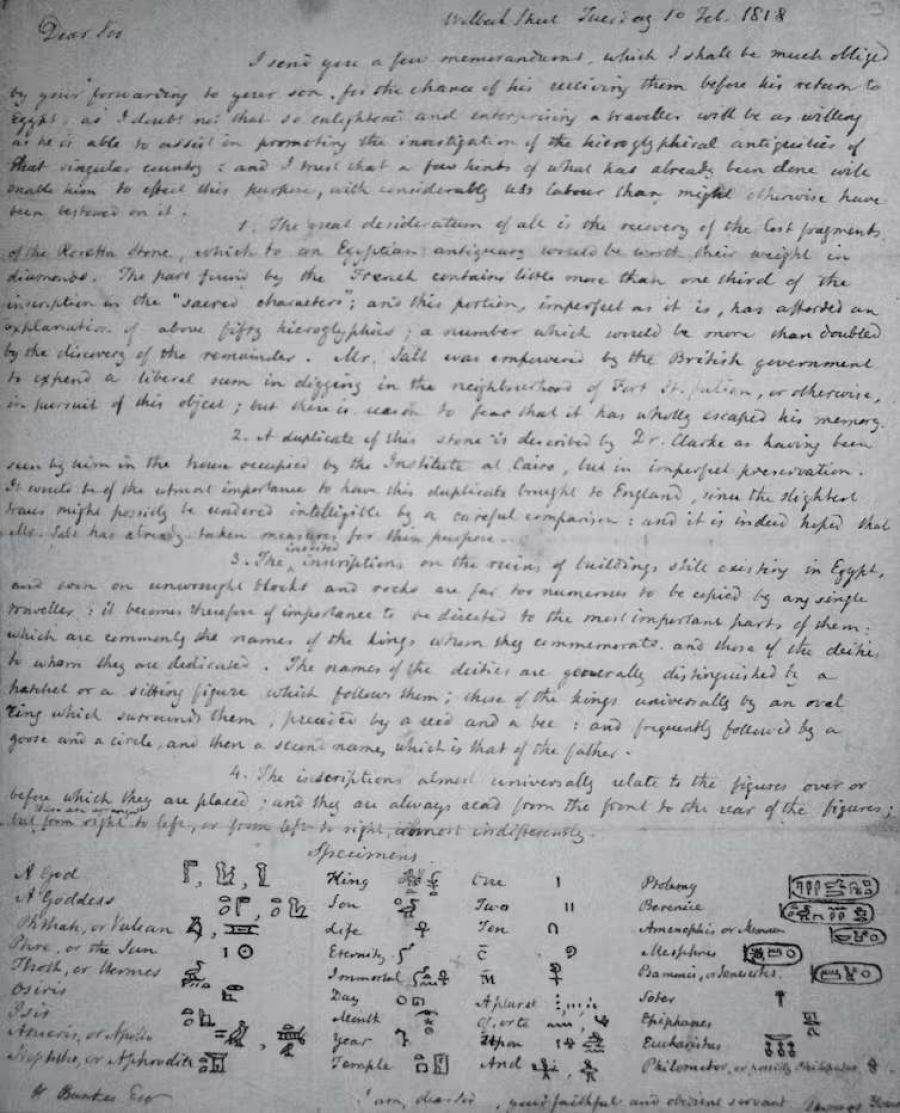 Welbeck Street Tuesday 10 Feb. 1818
3
Dear Sir
I send you a few memorandums, which I shall be much obliged
by your forwarding to your son, for the chance of his receiving them before his return to
Egypt, as I doubt not that so enlightened and enterprising a traveller will be as willing
as he is able to assist in promoting the investigation of the hieroglyphical antiquities of
that singular country: and I trust that a few hints of what has already been done will
enable him to effect this purpose, with considerably less labour than might otherwise have
been bestowed on it.
1. The great desideratum of all is the recovery of the lost fragments
of the Rosetta Stone, which to an Egyptian antiquary would be worth their weight in
diamonds. The part found by the French contains little more than one third of the
inscription in the "sacred characters"; and this portion, imperfect as it is, has afforded an
explanation of above fifty hieroglyphics; a number which would be more than doubled
by the discovery of the remainder. Mr. Salt was empowered by the British government
to expend a liberal sum in digging in the neighbourhood of Fort St. Julian, or otherwise,
in pursuit of this object; but there is reason to fear that it has wholly escaped his memory.
2. A duplicate of this stone is described by Dr. Clarke as having been
seen by him in the house occupied by the Institute at Cairo, but in imperfect preservation.
It would be of the utmost importance to have this duplicate brought to England, since the slightest
traces might possibly be rendered intelligible by a careful comparison: and it is indeed hoped that
Mr. Salt has already taken measures for this purpose.
3. The inscriptions on the ruins of buildings still existing in Egypt,
and even on unwrought blocks and rocks are far too numerous to be copied by any single
traveller: it becomes therefore of importance to be directed to the most important parts of them:
which are commonly the names of the kings whom they commemorate and those of the deities
to whom they are dedicated. The names of the deities are generally distinguished by a
hatchet or a sitting figure which follows them; those of the kings universally by an oval
ring which surrounds them, preceded by a reed and a bee: and frequently followed by a
goose and a circle, and then a second name, which is that of the father.
4. The inscriptions almost universally relate to the figures over or
before which they are placed; and they are always read from the front to the rear of the figures;
but from right to left, or from left to right, almost indifferently.
Specimens.
A God King One Ptolemy
A Goddess Son Two Berenice
Phthah, or Vulcan Life Ten Amenophis or Memnon
Phre, or the Sun Eternity C̄ Mesphres
Thoth, or Hermes Immortal M̄
Osiris Day A plural Soter
Isis Month Of, or to Epiphanes
Arueris, or Apollo Year Upon Eucharistus
Nephthe, or Aphrodite Temple And Philometor, or possibly
W Bankes Esq
I am, dear Sir, your faithful and obedient servant Thomas Young